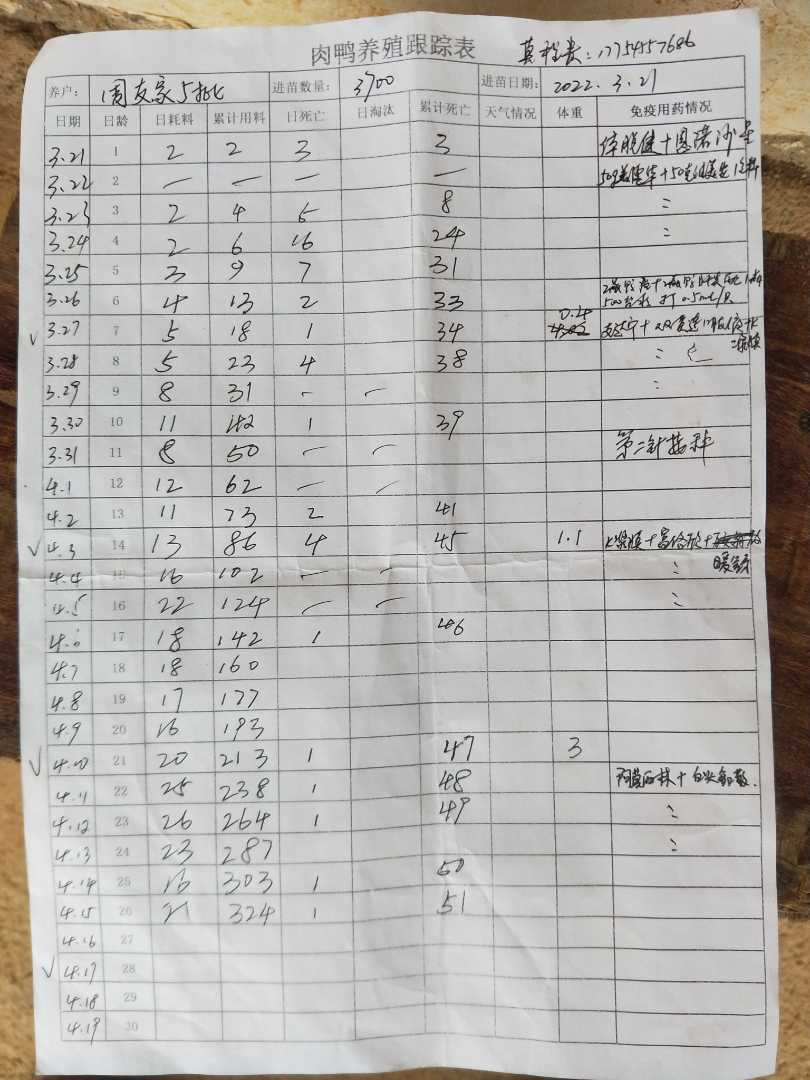 肉鸭养殖跟踪表 17754557686
养户: 周友家5批 进苗数量: 3700 进苗日期: 2022.3.21
日期 日龄 日耗料 累计用料 日死亡 日淘汰 累计死亡 天气情况 体重 免疫用药情况
3.21 1 2 2 3 3
3.22 2 — — — —
3.23 3 2 4 5 8 〃
3.24 4 2 6 16 24 〃
3.25 5 3 9 7 31
3.26 6 4 13 2 33
3.27 7 5 18 1 34 0.4
3.28 8 5 23 4 38 〃
3.29 9 8 31 — — 〃
3.30 10 11 42 1 39
3.31 11 8 50 — — 第二针接种
4.1 12 12 62 — —
4.2 13 11 73 2 41
√ 4.3 14 13 86 4 45 1.1
4.4 15 16 102 — — 〃
4.5 16 22 124 — — 〃
4.6 17 18 142 1 46
4.7 18 18 160
4.8 19 17 177
4.9 20 16 193
√ 4.10 21 20 213 1 47 3
4.11 22 25 238 1 48 阿莫西林+白头翁散.
4.12 23 26 264 1 49 〃
4.13 24 23 287 〃
4.14 25 16 303 1 50
4.15 26 21 324 1 51
4.16 27
√ 4.17 28
4.18 29
4.19 30